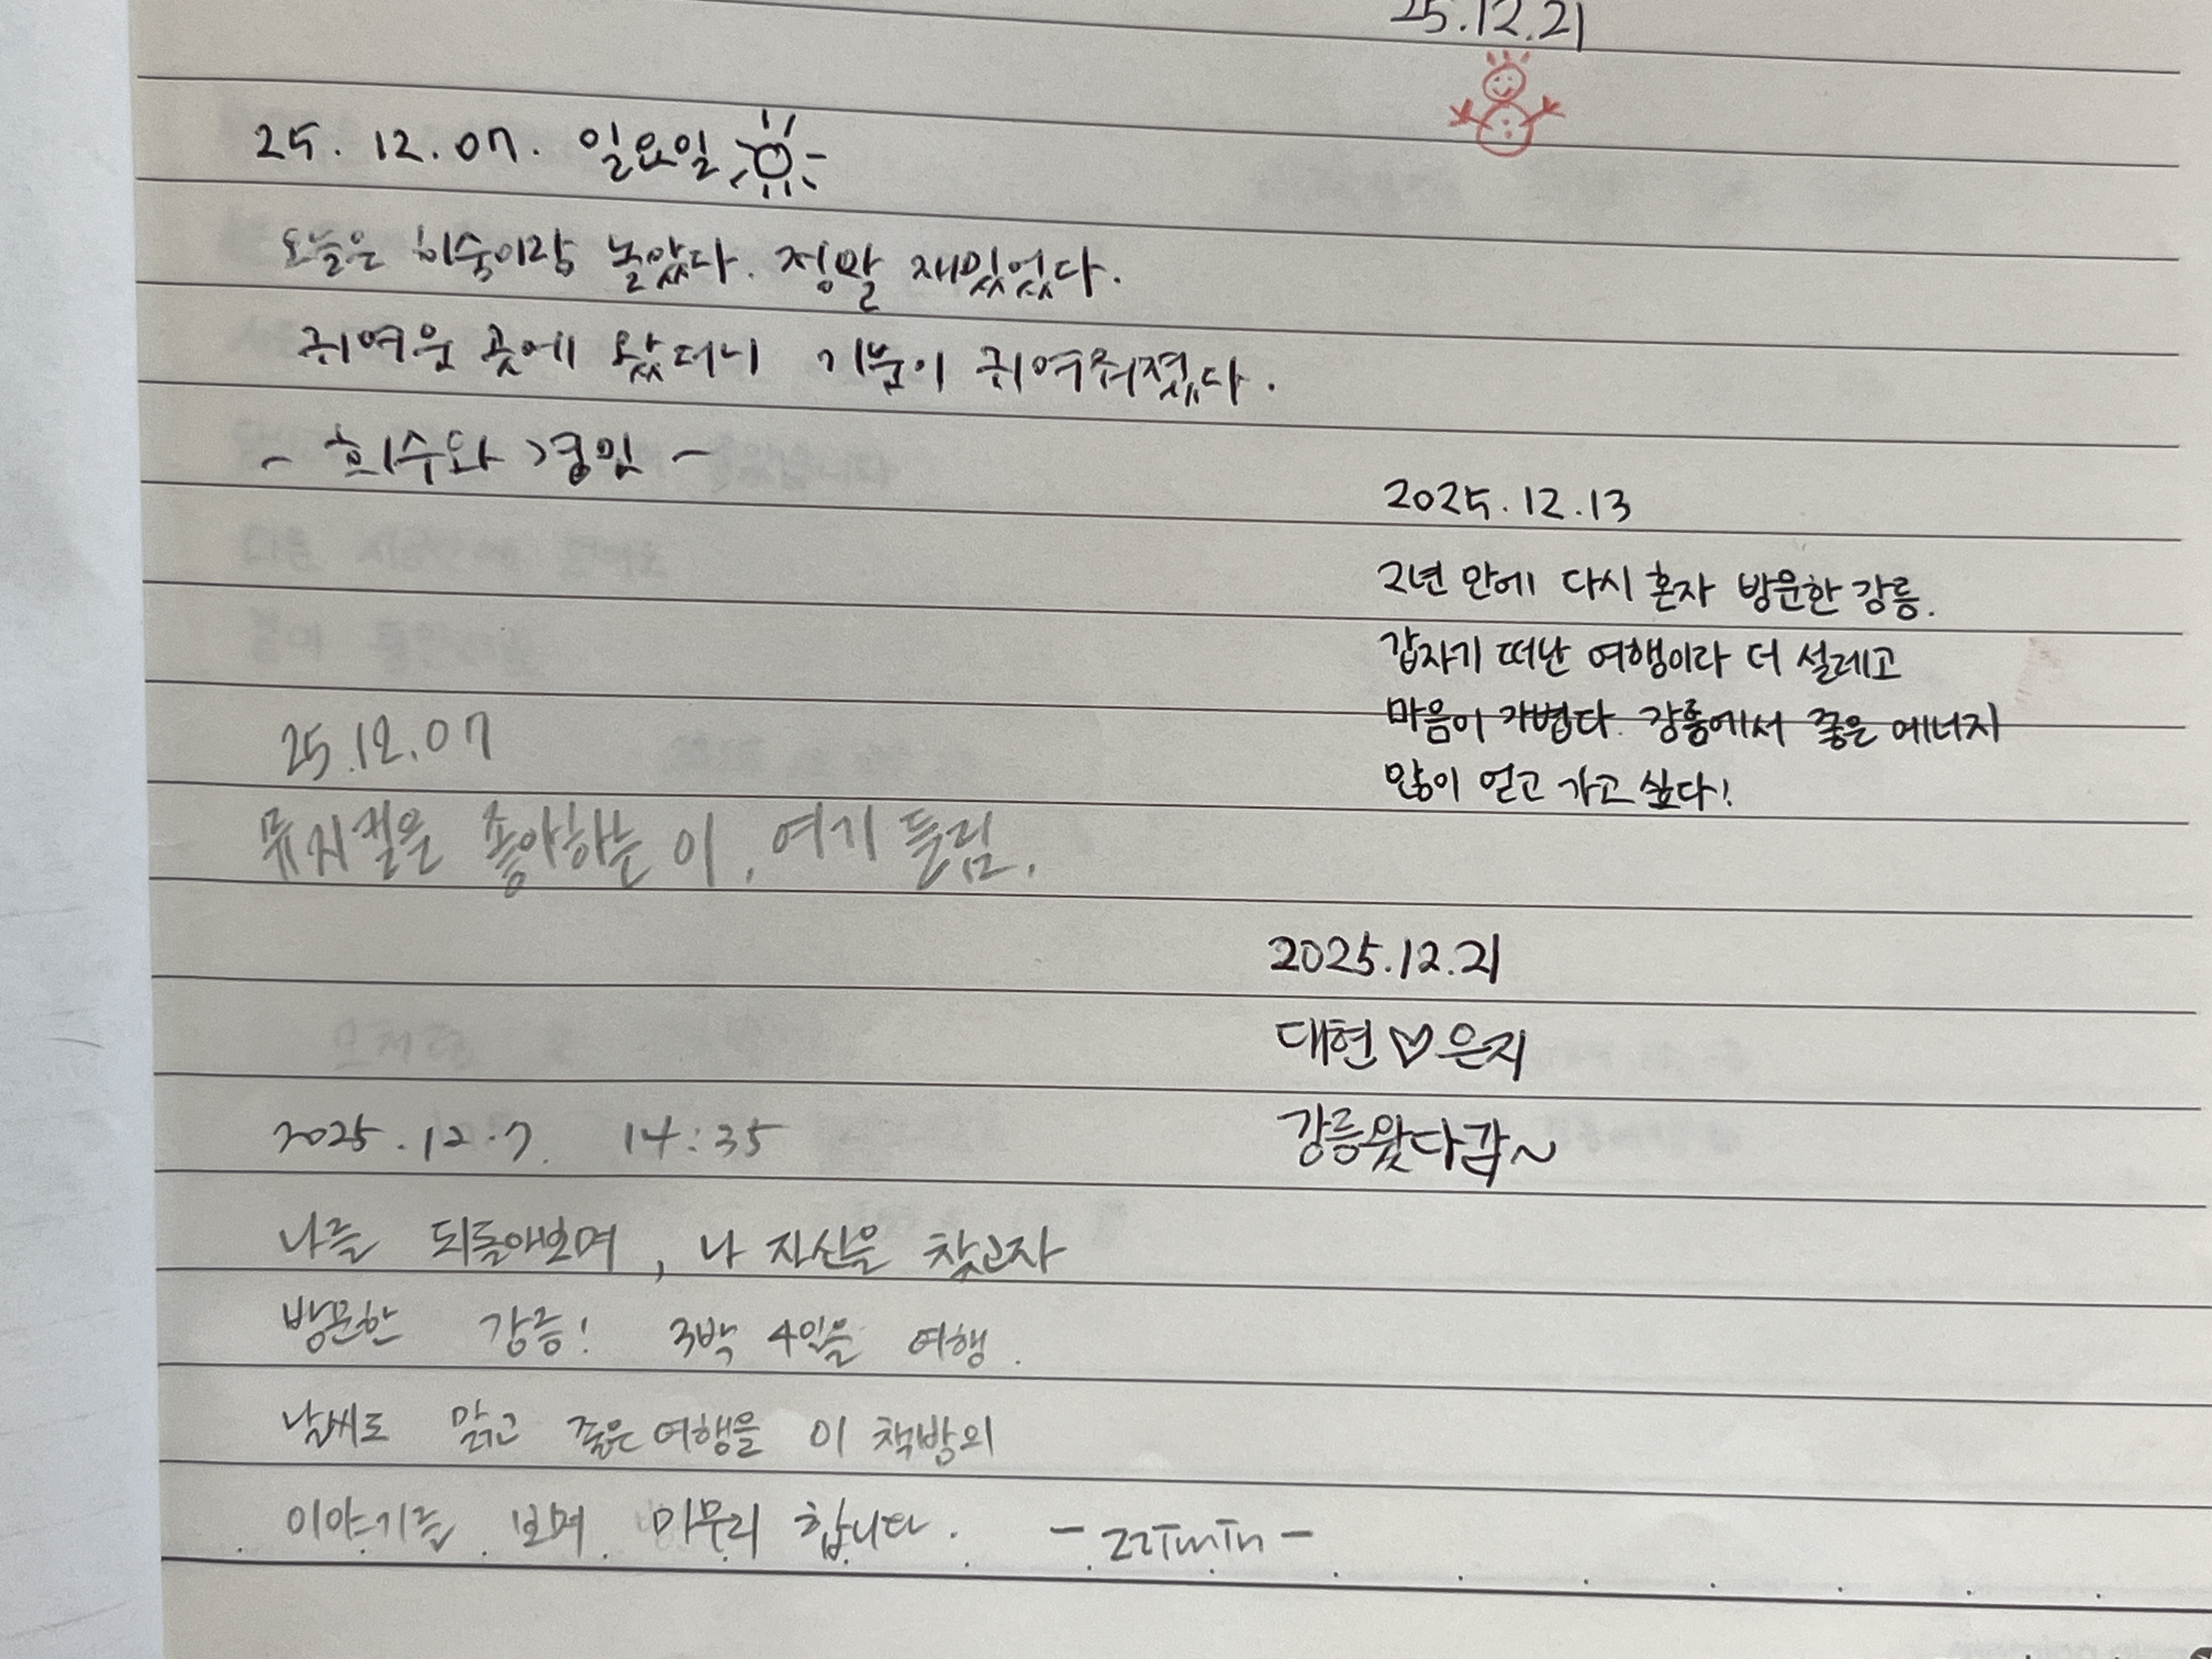 25.12.21
25. 12. 07. 일요일
오늘은 희숙이랑 놀았다. 정말 재밌었다.
귀여운 곳에 왔더니 기분이 귀여워졌다.
- 희수와 경민 -
25.12.07
뮤지컬을 좋아하는 이, 여기 들림.
2025.12.7. 14:35
나를 되돌아보며, 나 자신을 찾고자
방문한 강릉! 3박 4일을 여행.
날씨도 맑고 좋은 여행을 이 책방의
이야기를 보며 마무리 합니다.
2025.12.13
2년 만에 다시 혼자 방문한 강릉.
갑자기 떠난 여행이라 더 설레고
마음이 가볍다. 강릉에서 좋은 에너지
많이 얻고 가고 싶다!
2025.12.21
대현♡은지
강릉왔다감~